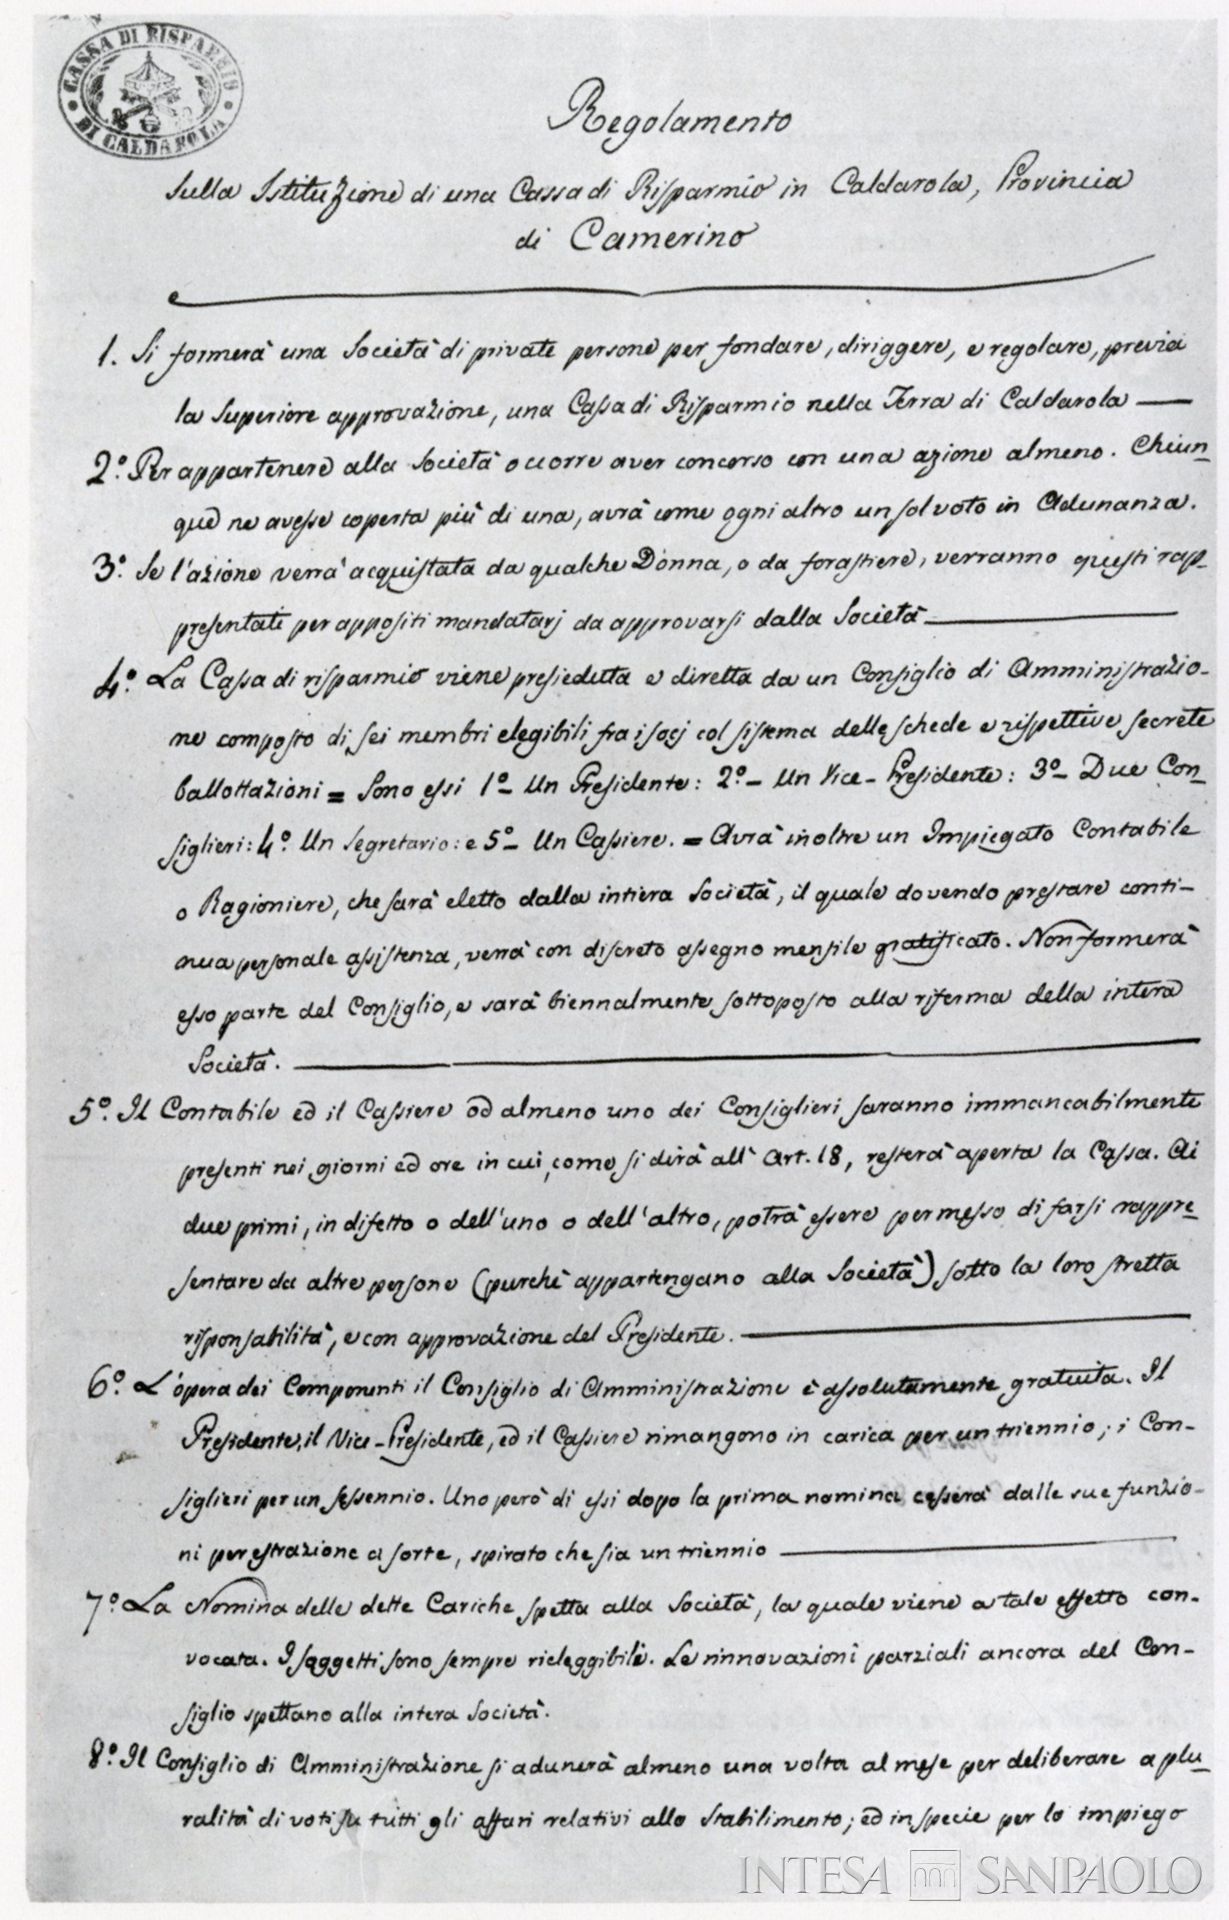 CASSA DI RISPARMIO
DI CALDAROLA
Regolamento
Sulla Istituzione di una Cassa di Risparmio in Caldarola, Provincia
di Camerino
1. Si formerà una Società di private persone per fondare, diriggere, e regolare, previa
la Superiore approvazione, una Cassa di Risparmio nella Terra di Caldarola —
2.° Per appartenere alla Società ocorre aver concorso con una azione almeno. Chiun-
que ne avesse coperta più di una, avrà come ogni altro un sol voto in Adunanza.
3.° Se l'azione verrà acquistata da qualche Donna, o da forastiere, verranno questi rap-
presentati per appositi mandatarj da approvarsi dalla Società —
4.° La Cassa di risparmio viene presiedetta e diretta da un Consiglio di Amministrazio-
ne composto di sei membri elegibili fra i socj col sistema delle schede e rispettive secrete
ballottazioni = Sono essi 1.° Un Presidente: 2.° — Un Vice-Presidente: 3.° — Due Con-
siglieri: 4.° Un Segretario: e 5.° — Un Cassiere. = Avrà inoltre un Impiegato Contabile
o Ragioniere, che sarà eletto dalla intiera Società, il quale dovendo prestare conti-
nua personale assistenza, verrà con discreto assegno mensile gratificato. Non formerà
esso parte del Consiglio, e sarà biennalmente sottoposto alla riferma della intera
Società. —
5.° Il Contabile ed il Cassiere od almeno uno dei Consiglieri saranno immancabilmente
presenti nei giorni ed ore in cui, come si dirà all' Art. 18, resterà aperta la Cassa. Ai
due primi, in difetto o dell'uno o dell'altro, potrà essere permesso di farsi rappre-
sentare da altre persone (purchè appartengano alla Società) sotto la loro stretta
risponsabilità, e con approvazione del Presidente. —
6.° L'opera dei Componenti il Consiglio di Amministrazione è assolutamente gratuita. Il
Presidente, il Vice-Presidente, ed il Cassiere rimangono in carica per un triennio; i Con-
siglieri per un sessennio. Uno però di essi dopo la prima nomina cesserà dalle sue funzio-
ni per estrazione a sorte, spirato che sia un triennio —
7.° La Nomina delle dette Cariche spetta alla Società, la quale viene a tale effetto con-
vocata. I soggetti sono sempre rieleggibili. Le rinnovazioni parziali ancora del Con-
siglio spettano alla intera Società.
8.° Il Consiglio di Amministrazione si adunerà almeno una volta al mese per deliberare a plu-
ralità di voti su tutti gli affari relativi allo Stabilimento; ed in specie per lo impiego
INTESA SANPAOLO